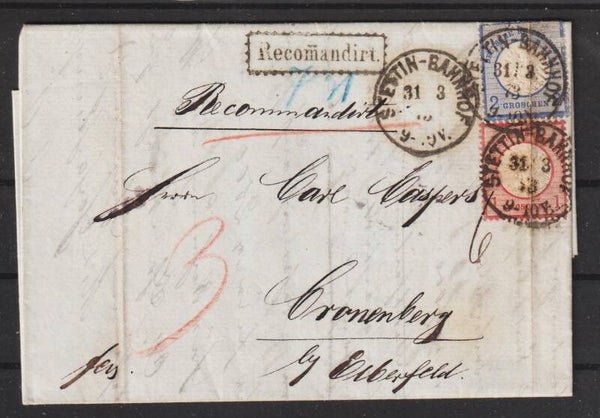 Recomandirt.
STETTIN-BAHNHOF
31 3
73
6-9V.
STETTIN-BAHNHOF
31 3
2 GROSCHEN
Recommandirt
STETTIN-BAHNHOF
31 3
73
Herrn Carl Caspers
3
Cronenberg
by Elberfeld